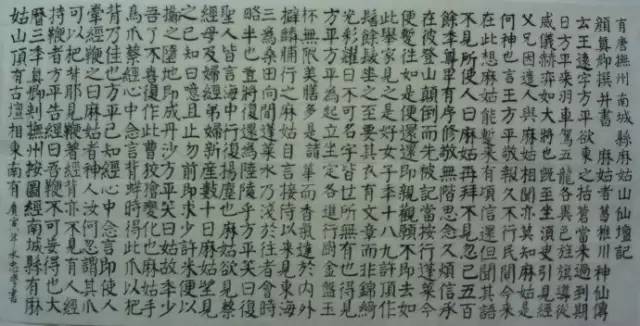 有唐撫州南城縣麻姑山仙壇記
顏真卿撰并書 麻姑者葛稚川神仙傳
云王遠字方平欲東之括蒼當來過到期
日方平乘羽車駕五龍各異色旌旗導從
威儀赫弈如大將也既至坐須臾引見經
父兄因遣人與麻姑相聞亦莫知麻姑是
何神也言王方平敬報久不行民間今來
在此想麻姑能暫來有頃信還但聞其語
不見所使人曰麻姑再拜不見忽已五百
餘年尊卑有序修敬無階思念久煩信承
在彼登山顛倒而先被記當按行蓬萊今
便暫往如是便還還即親觀願不即去如
此舉家見之是好女子年十八九許頂作
髻餘髮垂之至要其衣有文章而非錦綺
光彩耀日不可名字皆世所無有也得見
方平方平為起立坐定各進行廚金盤玉
杯無限美膳多是諸華而香氣達於內外
擗麟脯行之麻姑自言接待以來見東海
三為桑田向間蓬萊水乃淺於往者會時
略半也豈將復還為陸陵乎方平笑曰
聖人皆言海中行復揚塵也麻姑欲見蔡
經母及婦經弟婦新產數十日麻姑望見
之已知曰噫且止勿前即求少許米便以
擲之墮地即成丹沙方平笑曰姑故年少
吾了不喜復作此曹狡獪變化也麻姑手
鳥爪蔡經心中念言背蛘時得此爪以杷
背乃佳也方平已知經心中念言即使人
牽經鞭之曰麻姑者神人汝何忽謂其爪
可以把背耶見鞭著經背亦不見有人
持鞭者方平告經曰吾鞭不可妄得也大
曆三年真卿刺撫州按圖經南城縣有麻
姑山頂有古壇相東南有 庚寅年